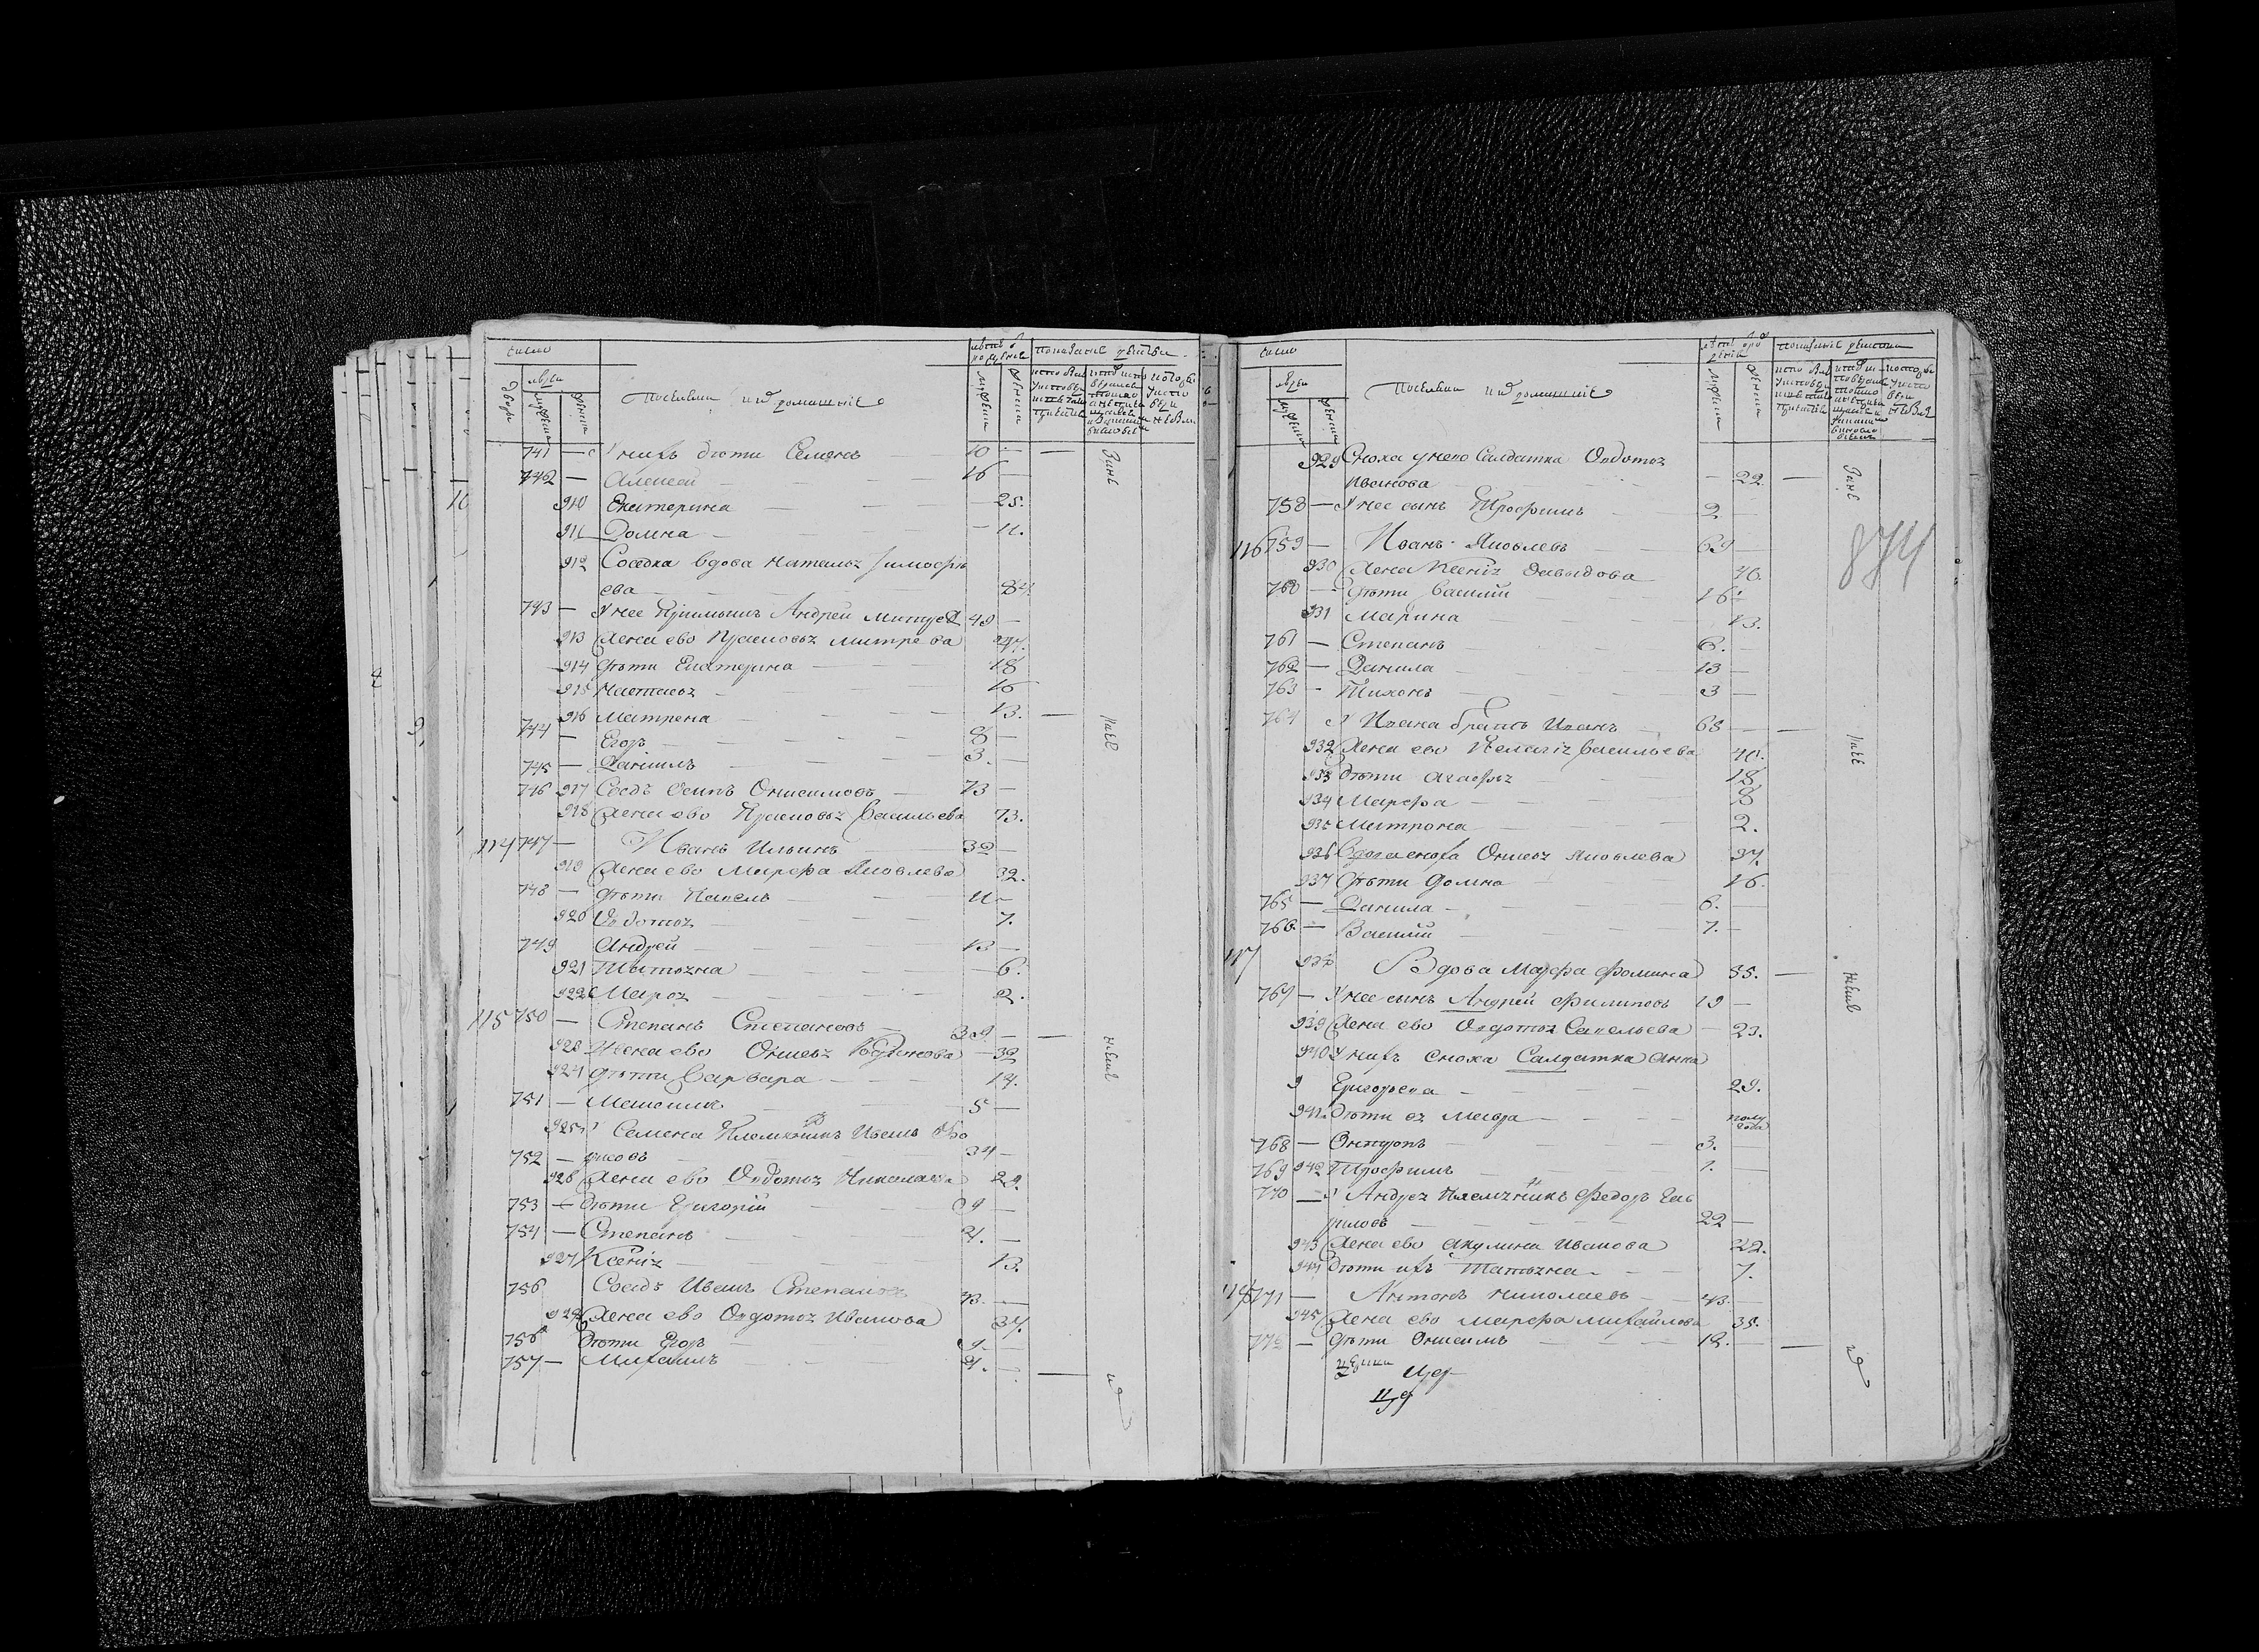 число
людей
лѣта от рожденія
показаніе дѣйства
дворы
мужеска
женска
Посацкіи и ихъ домашніе
741 — У нихъ дѣти Семенъ 10
742 — Алексей 16
910 Екатерина 25.
911 Домна 11.
912 Соседка вдова Наталья Тимофѣ
ева 84
743 — У нее Приимышъ Андрей 49
913 Жена ево Прасковья Митрева 47.
914 Дѣти Екатерина 18
915 Настасья 16
916 Матрена 13.
744 — Егоръ 8
745 — Даниилъ 3.
746 917 Сосѣдъ Осипъ Онисимовъ 73
918 Жена ево Прасковья Васильева 73.
114 747 — Иванъ Ильинъ 32
919 Жена ево Марфа Яковлева 32.
748 — Дѣти Павелъ 11
920 Овдотья 7.
749 Андрей 13
921 Татьяна 6.
922 Марья 2.
115 750 — Степанъ Степановъ 39
923 Жена ево Онисья Родионова 32
924 Дѣти Варвара 14.
751 — 5
925 Семена Племянникъ Иванъ
752 — рисовъ 34
926 Жена ево Овдотья Николаева 29.
753 — Дѣти Григорій 9
754 — Степанъ 4.
927 Ксенія 13.
756 Сосѣдъ Иванъ Степановъ 43.
928 Жена ево Овдотья Иванова 37.
756 Дѣти Егоръ 9.
757 — Михаилъ 4.
число
людей
показаніе дѣйства
мужеска
женска
Посацкіи и ихъ домашніе
929 Сноха у него Салдатка Овдотья
Иванова 22.
758 — У нее сынъ Трофимъ 2
874
116 759 — Иванъ Яковлевъ 69
930 Жена Ксенія Давыдова 40.
760 — Дѣти Василій 16
931 Марина 13.
761 — Степанъ 6.
762 — Данила 13
763 — Тихонъ 3
764 У Ивана братъ Иванъ 68
932 Жена ево Пелагія Васильева 40.
933 Дѣти Агафья 18
934 Марфа 8
935 Матрона 2.
936 Вдова сноха Онисья Яковлева 37.
937 Дѣти Домна 16.
765 — Данила 6.
766 — Василій 7.
117 938 Вдова Марфа Фомина 55.
767 — У нее сынъ Андрей Филиповъ 19
939 Жена ево Овдотья Савельева 23.
940 У нихъ сноха Салдатка Анна
Григорьева 29.
941 Дѣти ея Мавра полу
года
768 — Онтропъ 3.
769 942 Трофимъ 1.
770 — У Андрея племянникъ Федоръ Гав
риловъ 22
943 Жена ево Акулина Иванова 22.
944 Дѣти ихъ Татьяна 7.
118 771 — Антонъ Николаевъ 43.
945 Жена ево Марфа Михайлова 35.
772 — Дѣти Онисимъ 12.